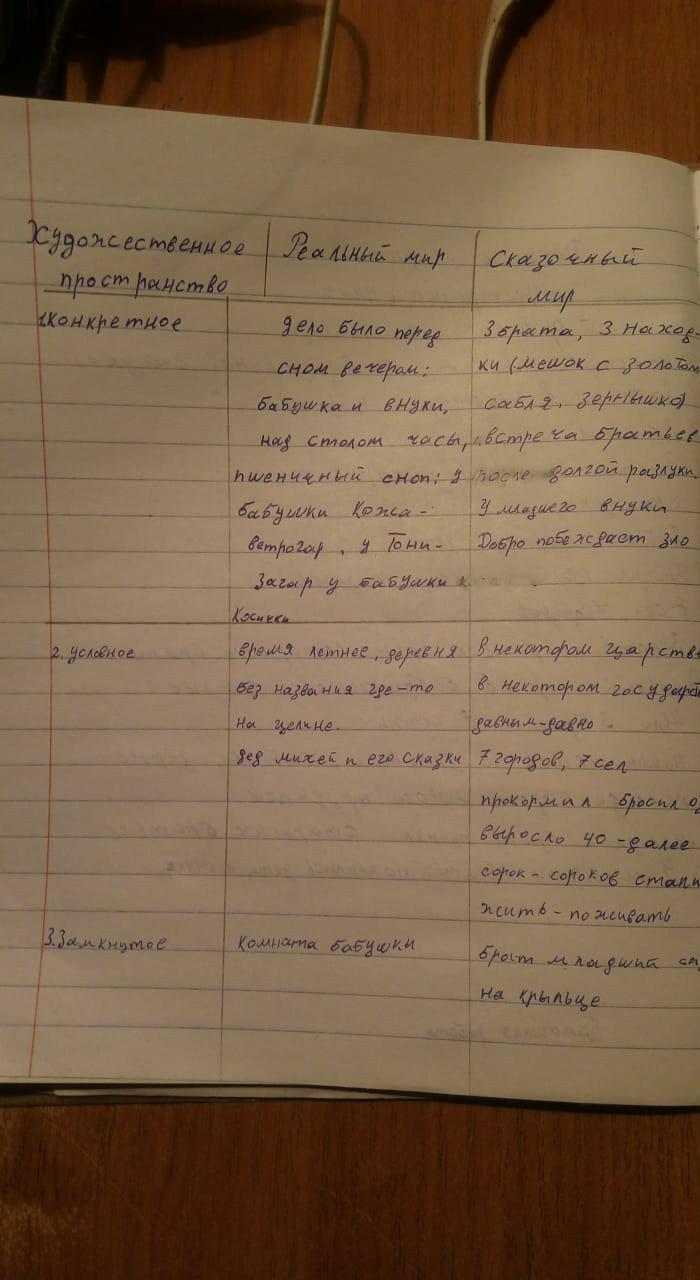 Художественное пространство
Реальный мир
Сказочный мир
1.конкретное
дело было перед
сном вечером:
бабушка и внуки,
над столом часы,
пшеничный сноп; у
бабушки Кожа-
ветрогар, у Тони-
Загар у бабушки
Косички
3 брата, 3 наход-
ки (мешок с золотом
сабля, зернышко)
встреча братьев
после долгой разлуки
У младшего внуки
Добро побеждает зло
2. условное
время летнее, деревня
без названия где-то
на целине.
дед михей и его сказки
в некотором царстве
в некотором государ
давным-давно
7 городов, 7 сел
прокормил бросил
выросло 40-далее
сорок-сороков стали
жить-поживать
3.Замкнутое
комната бабушки
брат младший
на крыльце